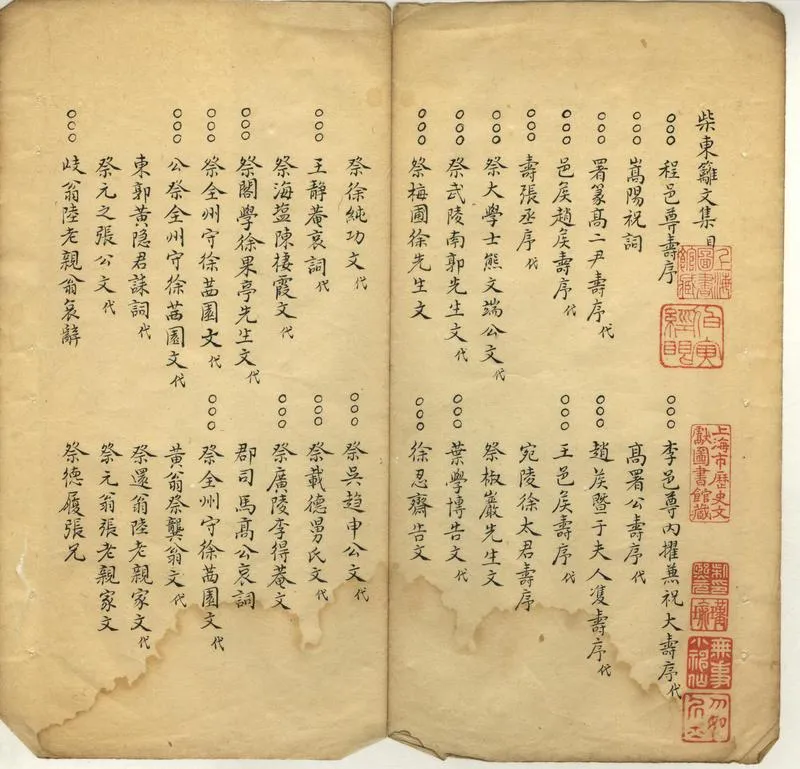 柴東籬文集目
○○○程邑尊壽序 ○○○李邑尊內擢兼祝大壽序代
○○○嵩陽祝詞 高署公壽序代
○○○署篆高二尹壽序代 ○○○趙矦暨于夫人雙壽序代
○○○邑矦趙矦壽序代 ○○○王邑矦壽序代
○○○壽張丞序代 宛陵徐太君壽序
○○○祭大學士熊文端公文代 祭椒巖先生文
○○○祭武陵南郭先生文代 ○○○葉學博告文代
○○○祭梅圃徐先生文 ○○○徐忍齋告文
祭徐純功文代 ○○○祭吳趙申公文代
○○○王靜菴哀詞代 ○○○祭載德舅氏文代
祭海盐陳棲霞文代 ○○○祭廣陵李得菴文
○○○祭閣學徐果亭先生文代 郡司馬高公哀詞
○○○祭全州守徐茁園文代 ○○○祭全州守徐茁園文代
○○○公祭全州守徐茁園文代 黃翁祭龔翁文代
東郭黃隐君誄詞代 祭還翁陸老親家文代
祭元之張公文代 祭元翁張老親家文
○○○岐翁陸老親翁哀辭 祭德履張兄
上海圖書館藏
上海市歷史文獻圖書館藏
無事小神仙